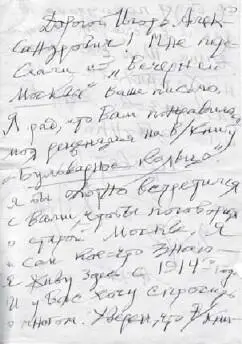 Дорогой Игорь Алек-
сандрович! Мне пере-
слали из "Вечерней
Москвы" Ваше письмо.
Я рад, что Вам понравилась
моя рецензия на в/книгу
"Бульварное кольцо".
Я бы охотно встретился
с Вами, чтобы поговорить
о старой Москве. Я
сам кое-что знаю
Я живу здесь с 1914 года.
И у Вас хочу спросить
о многом. Уверен, что